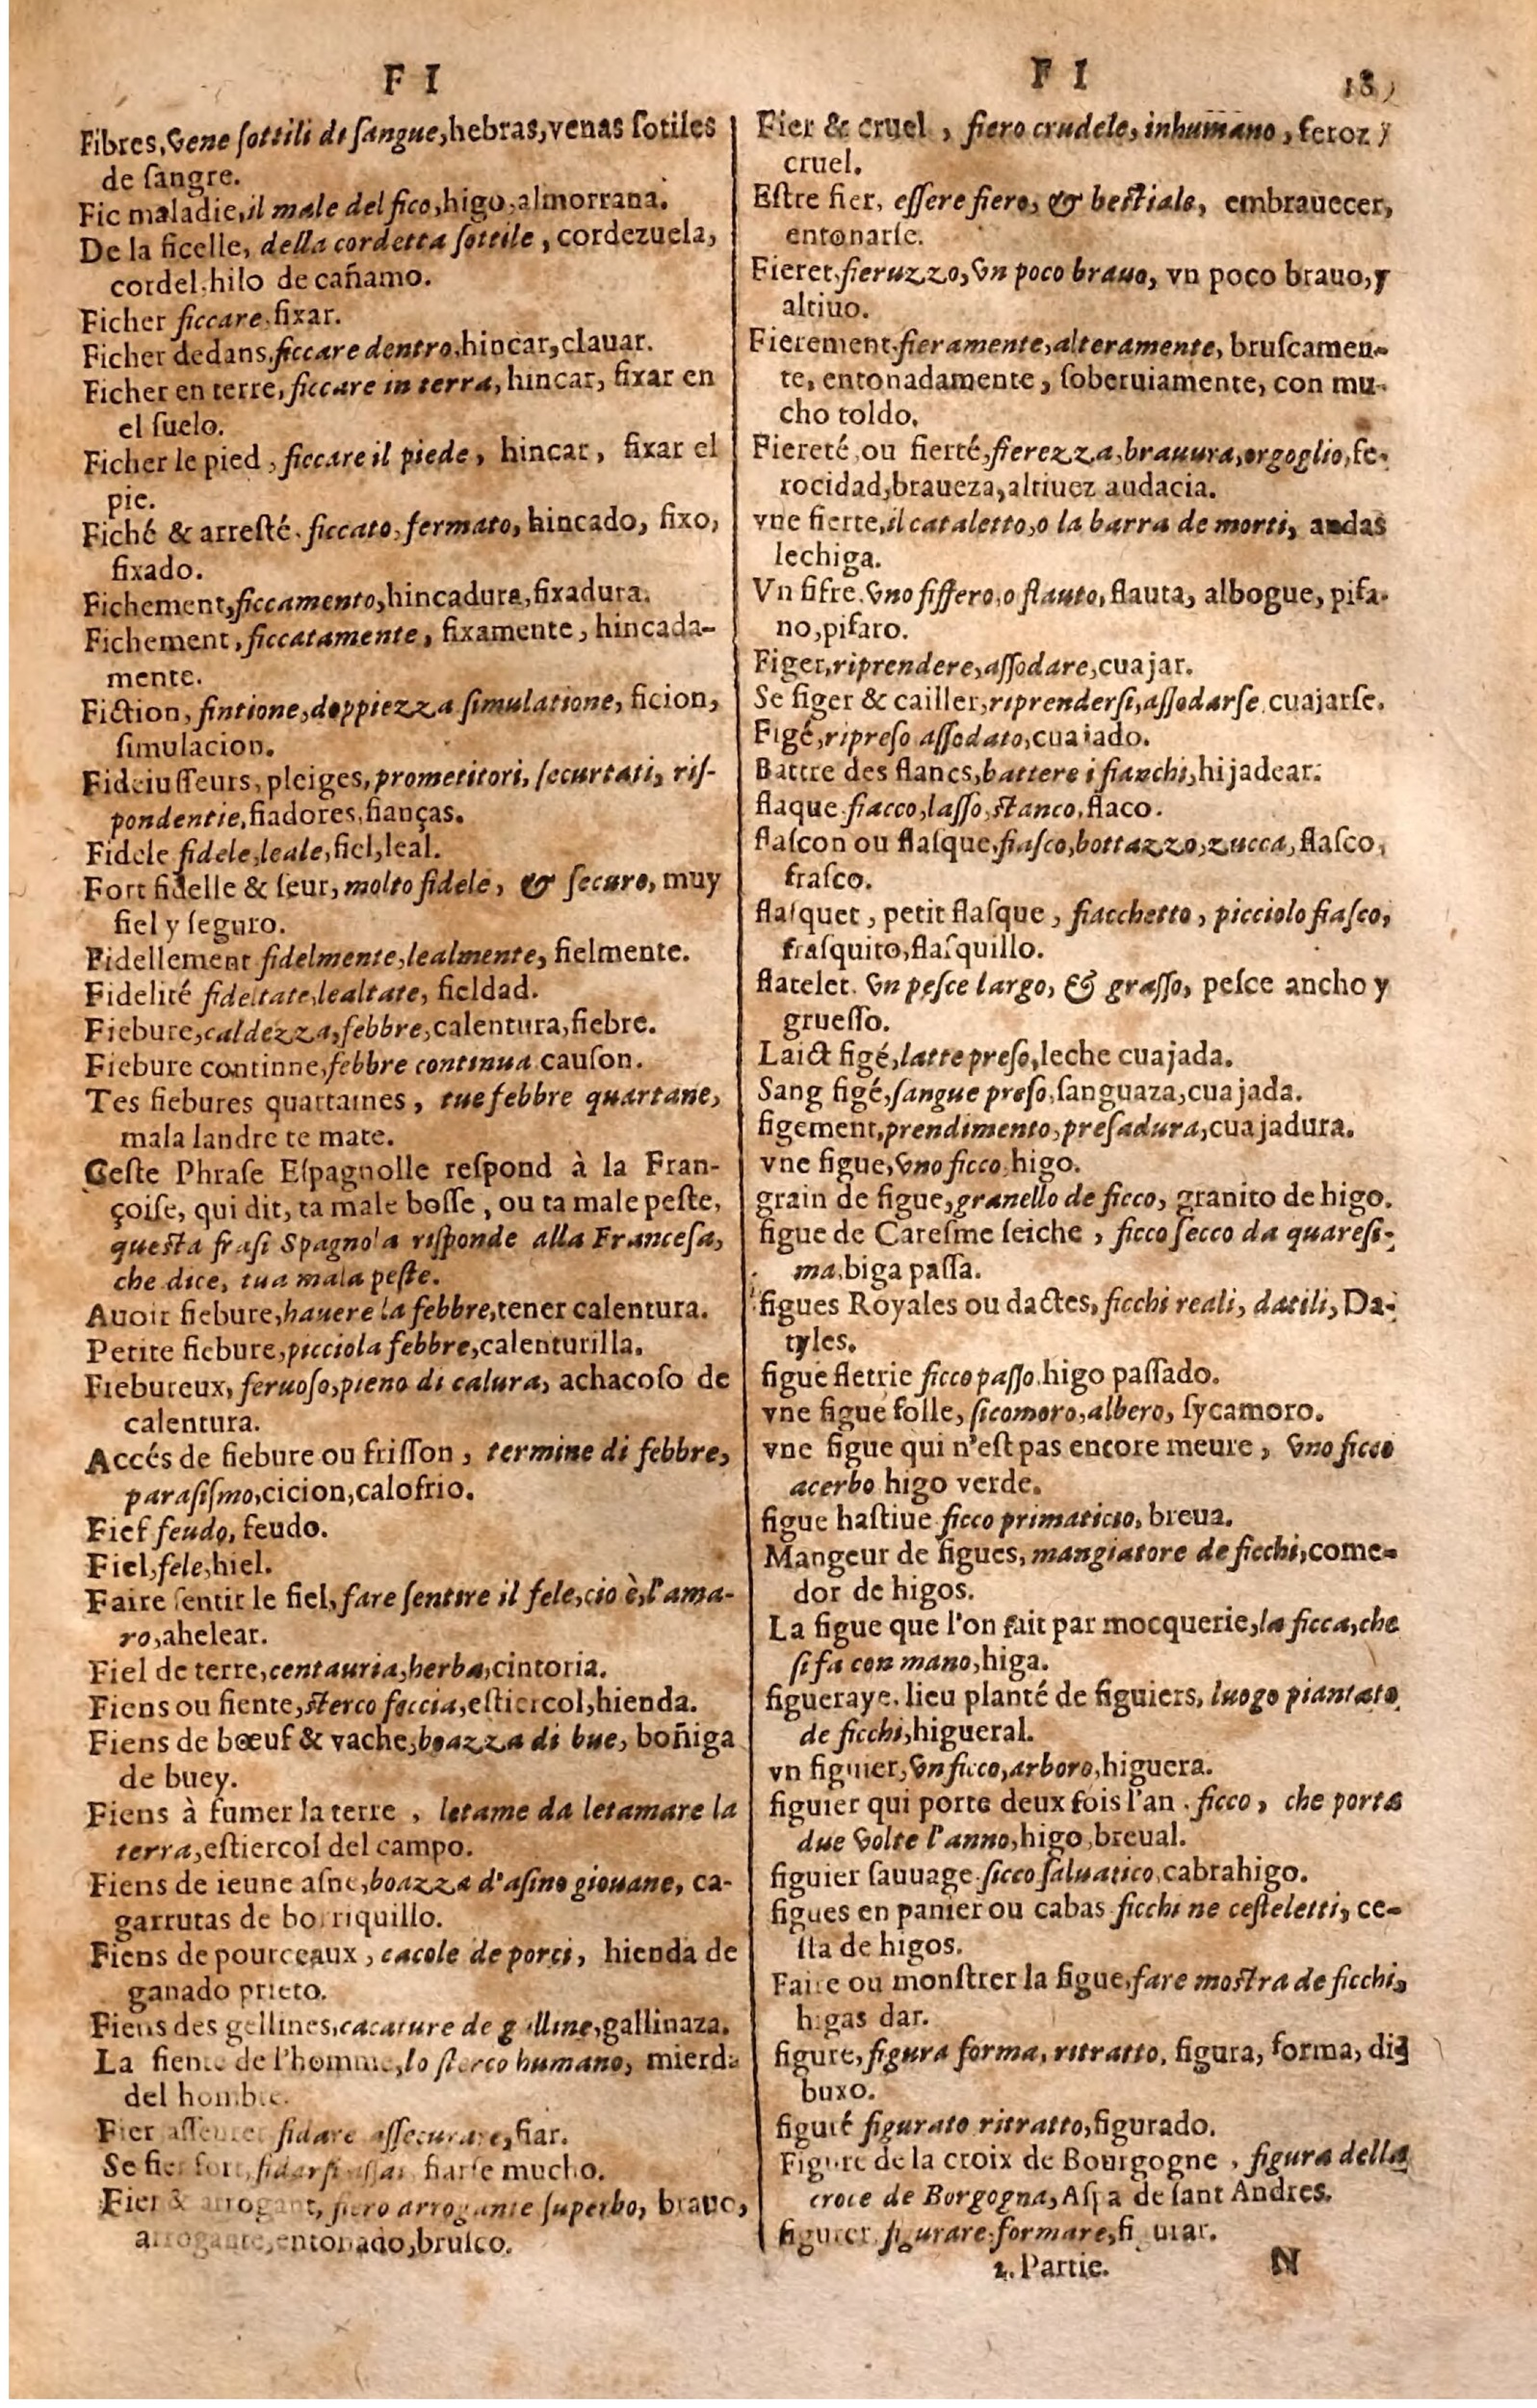 F I
Fibres, vene sottili di sangue, hebras, venas sotiles
de sangre.
Fic maladie, il male del fico, higo, almorrana.
De la ficelle, della cordetta sottile, cordezuela,
cordel, hilo de cañamo.
Ficher ficcare, fixar.
Ficher dedans, ficcare dentro, hincar, clauar.
Ficher en terre, ficcare in terra, hincar, fixar en
el suelo.
Ficher le pied, ficcare il piede, hincar, fixar el
pie.
Fiché & arresté. ficcato, fermato, hincado, fixo,
fixado.
Fichement, ficcamento, hincadura, fixadura.
Fichement, ficcatamente, fixamente, hincada-
mente.
Fiction, fintione, doppiezza simulatione, ficion,
simulacion.
Fideiusseurs, pleiges, prometitori, securtati, ris-
pondentie, fiadores, fianças.
Fidele fidele, leale, fiel, leal.
Fort fidelle & seur, molto fidele, & securo, muy
fiel y seguro.
Fidellement fidelmente, lealmente, fielmente.
Fidelité fideltate, lealtate, fieldad.
Fiebure, caldezza, febbre, calentura, fiebre.
Fiebure continne, febbre continua causon.
Tes fiebures quartaines, tue febbre quartane,
mala landre te mate.
Ceste Phrase Espagnolle respond à la Fran-
çoise, qui dit, ta male bosse, ou ta male peste,
questa frasi Spagnola risponde alla Francesa,
che dice, tua mala peste.
Auoir fiebure, hauere la febbre, tener calentura.
Petite fiebure, picciola febbre, calenturilla.
Fiebureux, feruoso, pieno di calura, achacoso de
calentura.
Accés de fiebure ou frisson, termine di febbre,
parasismo, cicion, calofrio.
Fief feudo, feudo.
Fiel, fele, hiel.
Faire sentir le fiel, fare sentire il fele, cio è, l'ama-
ro, ahelear.
Fiel de terre, centauria, herba, cintoria.
Fiens ou fiente, sterco feccia, estiercol, hienda.
Fiens de bœuf & vache, boazza di bue, boñiga
de buey.
Fiens à fumer la terre, letame da letamare la
terra, estiercol del campo.
Fiens de ieune asne, boazza d'asino giouane, ca-
garrutas de borriquillo.
Fiens de pourceaux, cacole de porci, hienda de
ganado prieto.
Fiens des gellines, cacature de galline, gallinaza.
La fiente de l'homme, lo sterco humano, mierda
del hombre.
Fier asseurer fidare assecurare, fiar.
Se fier fort, fidarsi assai fiarse mucho.
Fier & arrogant, fiero arrogante superbo, brauo,
arrogante, entonado, brusco.
F I
18
Fier & cruel, fiero crudele, inhumano, feroz y
cruel.
Estre fier, essere fiero, & bestiale, embrauecer,
entonarse.
Fieret, fieruzzo, vn poco brauo, vn poco brauo, y
altiuo.
Fierement, fieramente, alteramente, bruscamen-
te, entonadamente, soberuiamente, con mu-
cho toldo.
Fiereté, ou fierté, fierezza, brauura, orgoglio, fe-
rocidad, braueza, altiuez audacia.
vne fierte, il cataletto, o la barra de morti, andas
lechiga.
Vn fifre. vno fiffero, o flauto, flauta, albogue, pifa-
no, pifaro.
Figer, riprendere, assodare, cuajar.
Se figer & cailler, riprendersi, assodarse cuajarse.
Figé, ripreso assodato, cuaiado.
Battre des flancs, battere i fianchi, hijadear.
flaque fiacco, lasso, stanco, flaco.
flascon ou flasque, fiasco, bottazzo, zucca, flasco,
frasco.
flasquet, petit flasque, fiacchetto, picciolo fiasco,
frasquito, flasquillo.
flatelet. vn pesce largo, & grasso, pesce ancho y
gruesso.
Laict figé, latte preso, leche cuajada.
Sang figé, sangue preso, sanguaza, cuajada.
figement, prendimento, presadura, cuajadura.
vne figue, vno ficco, higo.
grain de figue, granello de ficco, granito de higo.
figue de Caresme seiche, ficco secco da quaresi-
ma, biga passa.
figues Royales ou dactes, ficchi reali, datili, Da-
tyles.
figue fletrie ficco passo, higo passado.
vne figue folle, sicomoro, albero, sycamoro.
vne figue qui n'est pas encore meure, vno ficco
acerbo higo verde.
figue hastiue ficco primaticio, breua.
Mangeur de figues, mangiatore de ficchi, come-
dor de higos.
La figue que l'on fait par mocquerie, la ficca, che
si fa con mano, higa.
figueraye. lieu planté de figuiers, luogo piantato
de ficchi, higueral.
vn figuier, vn ficco, arboro, higuera.
figuier qui porte deux fois l'an. ficco, che porta
due volte l'anno, higo, breual.
figuier sauuage sicco saluatico, cabrahigo.
figues en panier ou cabas ficchi ne cesteletti, ce-
sta de higos.
Faire ou monstrer la figue, fare mostra de ficchi,
higas dar.
figure, figura forma, ritratto, figura, forma, di-
buxo.
figuré figurato ritratto, figurado.
Figure de la croix de Bourgogne, figura della
croce de Borgogna, Aspa de sant Andres.
figurer figurare, formare, figurar.
2. Partie. N